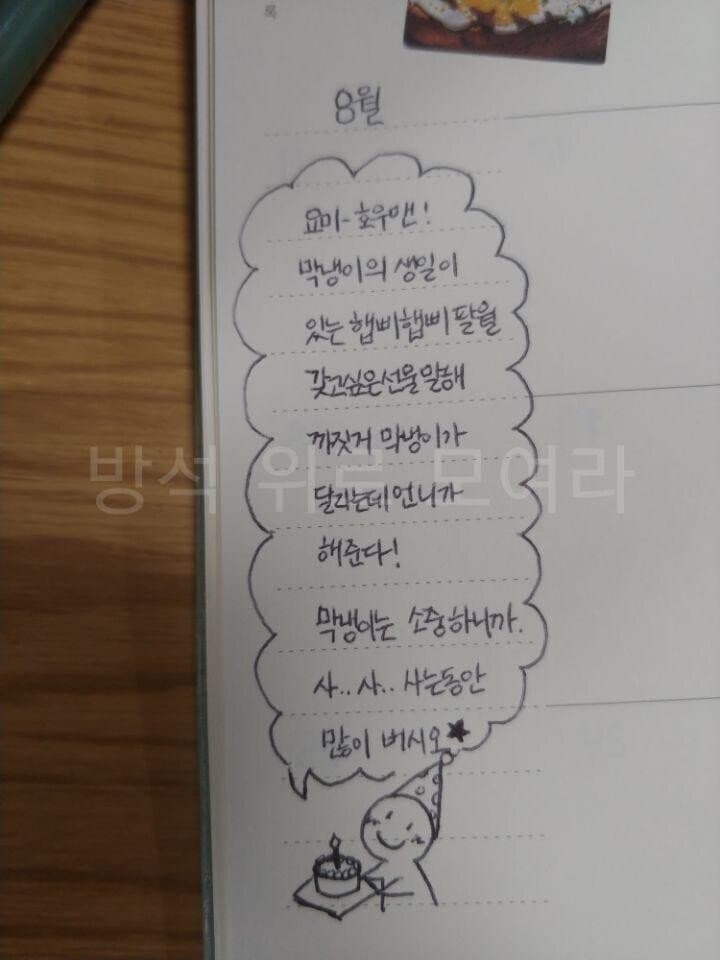 록
8월
요미-호우맨!
막냉이의 생일이
있는 햅삐햅삐 팔월
갖고싶은선물말해
까짓거 막냉이가
달라는데 언니가
해준다!
막냉이는 소중하니까.
사.. 사.. 사는동안
많이 버시오★
방석 위로 모여라